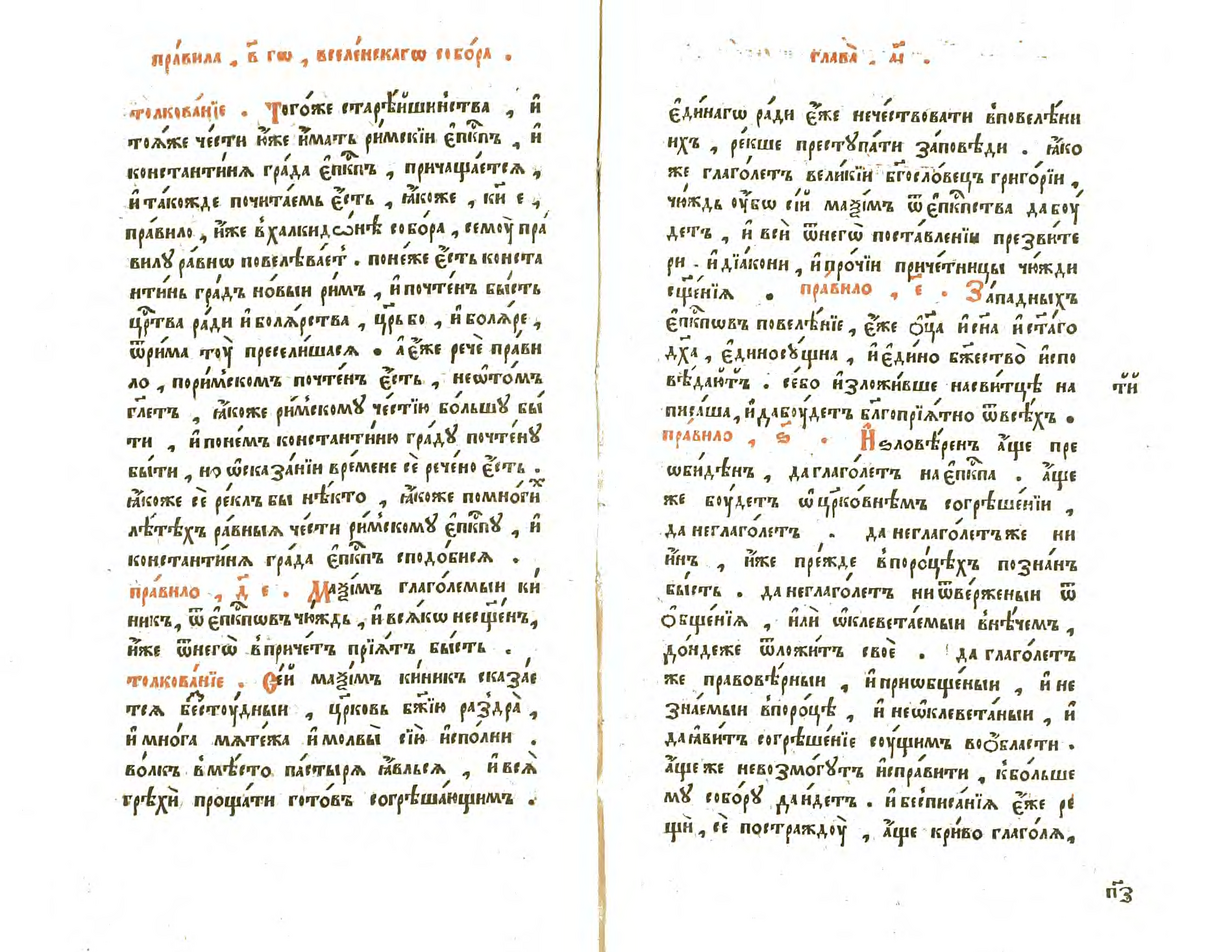 пра́вила , в҃ гѡ , вселе́нскагѡ собо́ра .
толкова́нїе . Того́же старѣ́йшиньства , и҆
тоя́же че́сти и҆́же и҆́мать ри́мскїи є҆пⷭ҇кпъ , и҆
константи́ня гра́да є҆пⷭ҇кпъ , причаща́ется ,
и҆ та́кожде почита́емь є҆́сть , ꙗ҆́коже , к҃и е ,
пра́вило , и҆́же вхалкидѡ́нѣ собо́ра , семоу̀ пра́
вилꙋ ра́внѡ повелѣва́етъ . поне́же є҆́сть конста
нти́нь гра́дъ но́выи ри́мъ , и҆ почте́нъ бы́сть
црⷭ҇тва ра́ди и҆ боля́рства , цр҃ь бо , и҆ боля́ре ,
ѿ ри́ма тоу̀ пресели́шася . а҆ є҆́же речѐ пра́ви
ло , пори́мьскомъ почте́нъ є҆́сть , неѡ҆то́мъ
гл҃етъ , ꙗ҆́коже ри́мьскомꙋ че́стїю бо́льшꙋ бы́
ти , и҆ поне́мъ константи́ню гра́дꙋ почте́нꙋ
бы́ти , но ѡ҆сказа́нїи вре́мене сѐ рече́но є҆́сть .
ꙗ҆́коже сѐ ре́клъ бы нѣ́кто , ꙗ҆́коже помно́гиⷯ
лѣ́тѣхъ ра́вныя че́сти ри́мьскомꙋ є҆пⷭ҇кпꙋ , и҆
константи́ня гра́да є҆пⷭ҇кпъ сподо́бися .
пра́вило , д҃ е . Маѯі́мъ глаго́лемыи ки́
никъ , ѿ є҆пⷭ҇кпѡвъ чю́ждь , и҆ вся́кѡ несщ҃е́нъ ,
и҆́же ѿнегѡ̀ в̾при́четъ прїя́тъ бы́сть .
толкова́нїе . Се́й маѯі́мъ ки́никъ сказа́е
тся бесⷭ҇тоу́дныи , цр҃ковь бж҃їю раздра̀ ,
и҆ мно́га мяте́жа и҆ молвы̀ сїю̀ и҆спо́лни .
во́лкъ в̾мѣ́сто па́стыря ꙗ҆́влься , и҆ вся̀
грѣхѝ проща́ти гото́въ согрѣша́ющимъ .
глава̀ . а҃і .
є҆ди́нагѡ ра́ди є҆́же нече́ствовати в̾повелѣ́ни
ихъ , ре́кше преступа́ти за́повѣди . ꙗ҆́ко
же глаго́летъ вели́кїи бг҃осло́вецъ григо́рїи ,
чю́ждь оу҆́бѡ сі́й маѯі́мъ ѿ є҆пⷭ҇кпства да боу́
детъ , и҆ всѝ ѿнегѡ̀ поста́вленїи презви́те
ри . и҆ дїа́кони , и҆ про́чїи приче́тницы чю́жди
сщ҃е́нїя . пра́вило , е҃ . За́падныхъ
є҆пⷭ҇кпѡвъ повелѣ́нїе , є҆́же ѻ҆ц҃а̀ и҆ сн҃а и҆ ст҃а́го
дх҃а , є҆диносу́щна , и҆ є҆ди́но бж҃ество̀ и҆спо
вѣ́даютъ . се́бо и҆зложи́вше насви́тцѣ на
тїи
писа́ша , и҆ дабоу́детъ бл҃гопрїя́тно ѿвсѣ́хъ .
пра́вило , ѕ҃ . И҆́ѕловѣ́ренъ а҆́ще пре
ѡ҆би́дѣнъ , да глаго́летъ на є҆пⷭ҇кпа . а҆́ще
же боу́детъ ѡ҆ цр҃ко́внѣмъ согрѣше́нїи ,
да неглаго́летъ . да неглаго́летъ же ни
и҆́нъ , и҆́же пре́жде в̾поро́цѣхъ по́знанъ
бы́сть . да неглаго́летъ ни ѿве́рженыи ѿ
ѻ҆бще́нїя , и҆лѝ ѡ҆клевета́емыи в̾не́чемъ ,
до́ндеже ѿложи́тъ своѐ . да глаго́летъ
же правове́рныи , и҆ приѡбще́ныи , и҆ не
зна́емыи в̾поро́цѣ , и҆ неѡ҆клевета́ныи , и҆
да ꙗ҆́витъ согрѣше́нїе соу́щимъ во ѻ҆́бласти .
а҆́ще же невозмо́гутъ и҆спра́вити , к̾бо́льше
мꙋ собо́рꙋ да и҆́детъ . и҆ беспⷭ҇иса́нїя є҆́же ре
щѝ , сѐ постра́ждоу , а҆́ще кри́во глаго́ля ,
п҃з